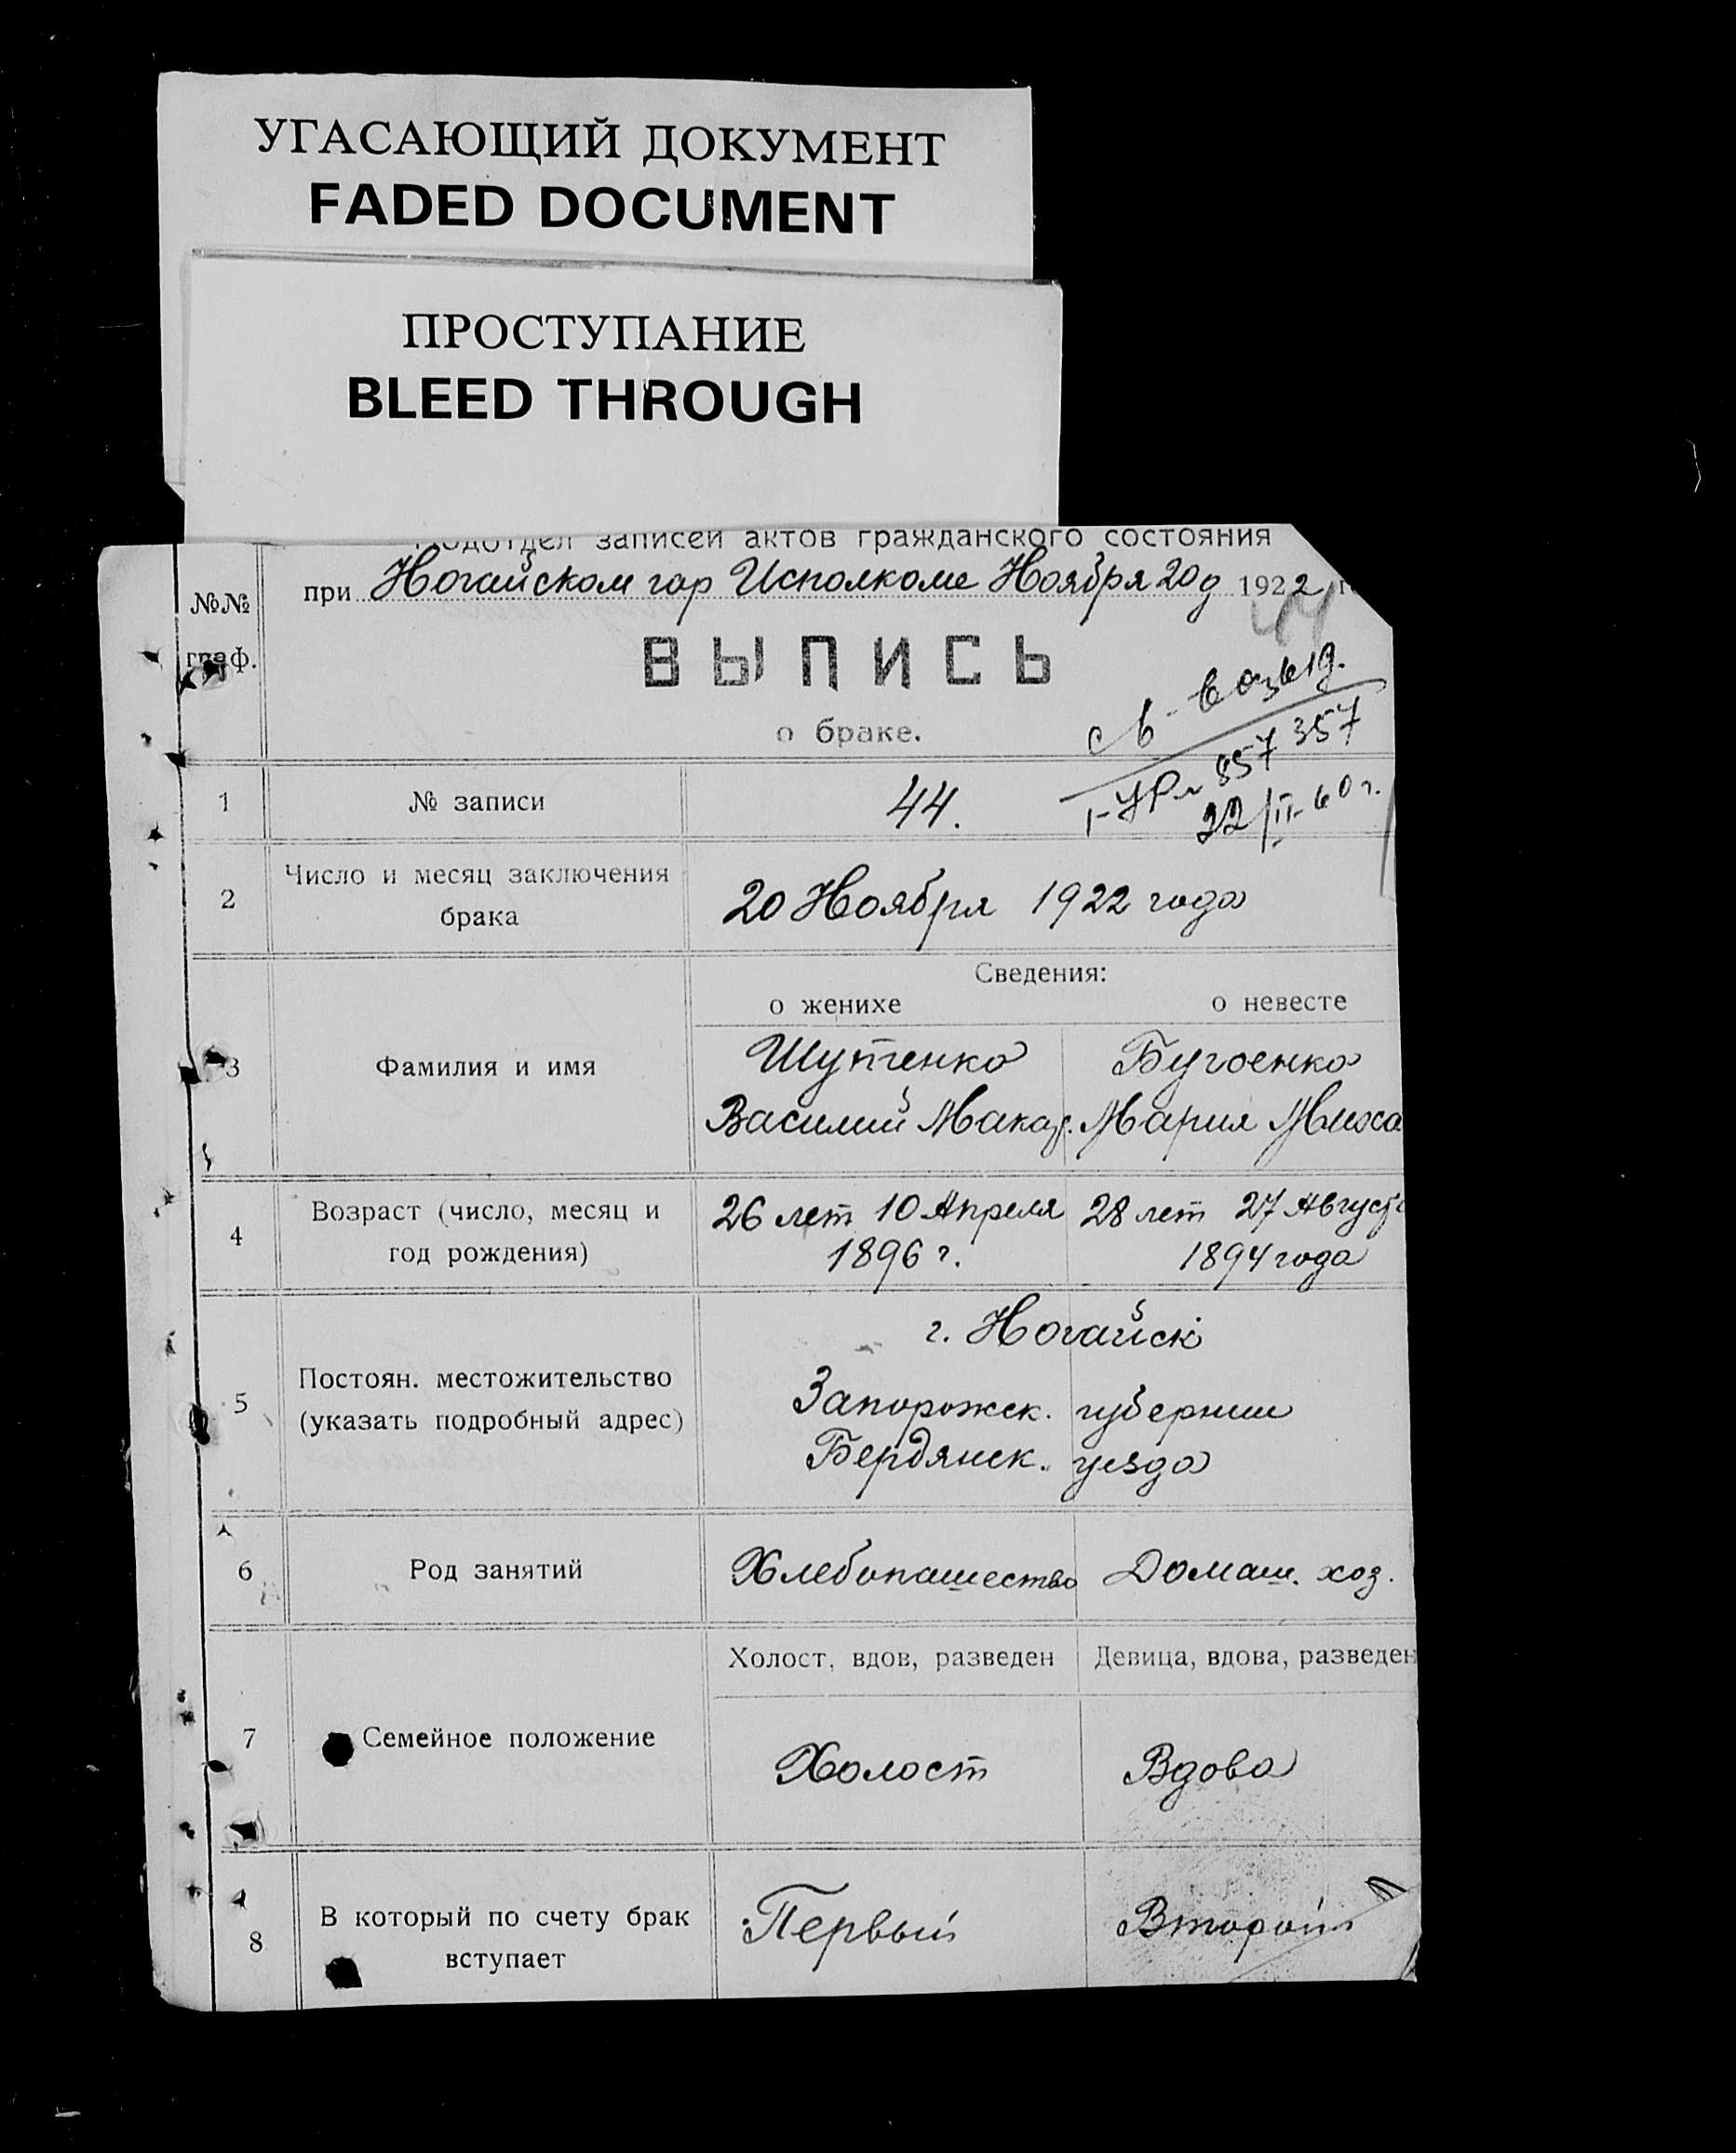 УГАСАЮЩИЙ ДОКУМЕНТ
FADED DOCUMENT
ПРОСТУПАНИЕ
BLEED THROUGH
Подотдел записей актов гражданского состояния
при Ногайском гор Исполкоме Ноября 20 д 1922
№№
граф.
ВЫПИСЬ
о браке.
357
22/II-60 г.
1 № записи 44.
2 Число и месяц заключения
брака
20 Ноября 1922 года
Сведения:
о женихе о невесте
3 Фамилия и имя
Шутченко Бугоенко
Василий Макар. Мария Миха
4 Возраст (число, месяц и
год рождения)
26 лет 10 Апреля 28 лет 27 Августа
1896 г. 1894 года
5 Постоян. местожительство
(указать подробный адрес)
г. Ногайск
Запорожск. губернии
Бердянск. уезда
6 Род занятий Хлебопашество Домаш. хоз.
Холост, вдов, разведен Девица, вдова, разведен
7 Семейное положение
Холост Вдова
8 В который по счету брак
вступает
Первый Второй